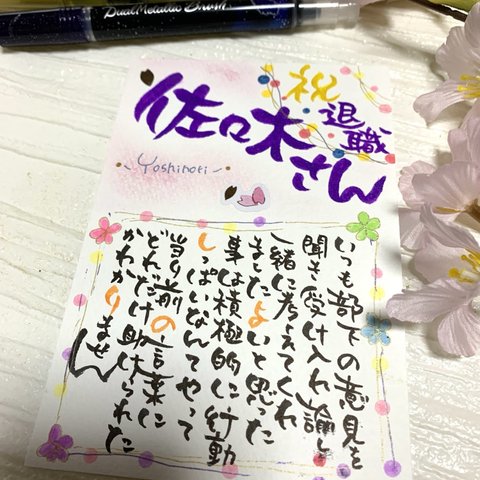 Dual Metallic Brush
祝
退職
佐々木さん
- Yoshinori -
いつも部下の意見を
聞き受け入れ諭し
一緒に考えてくれ
ましたよいと思った
事は積極的に行動
しっぱいなんてやって
当り前の言葉に
どれだけ助けられた
かわかりません